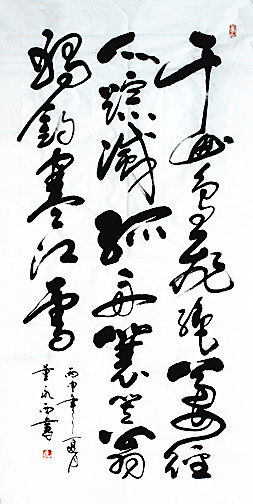 千山鳥飛絕萬徑
人踪滅孤舟蓑笠翁
獨釣寒江雪
丙申年之夏月
永書